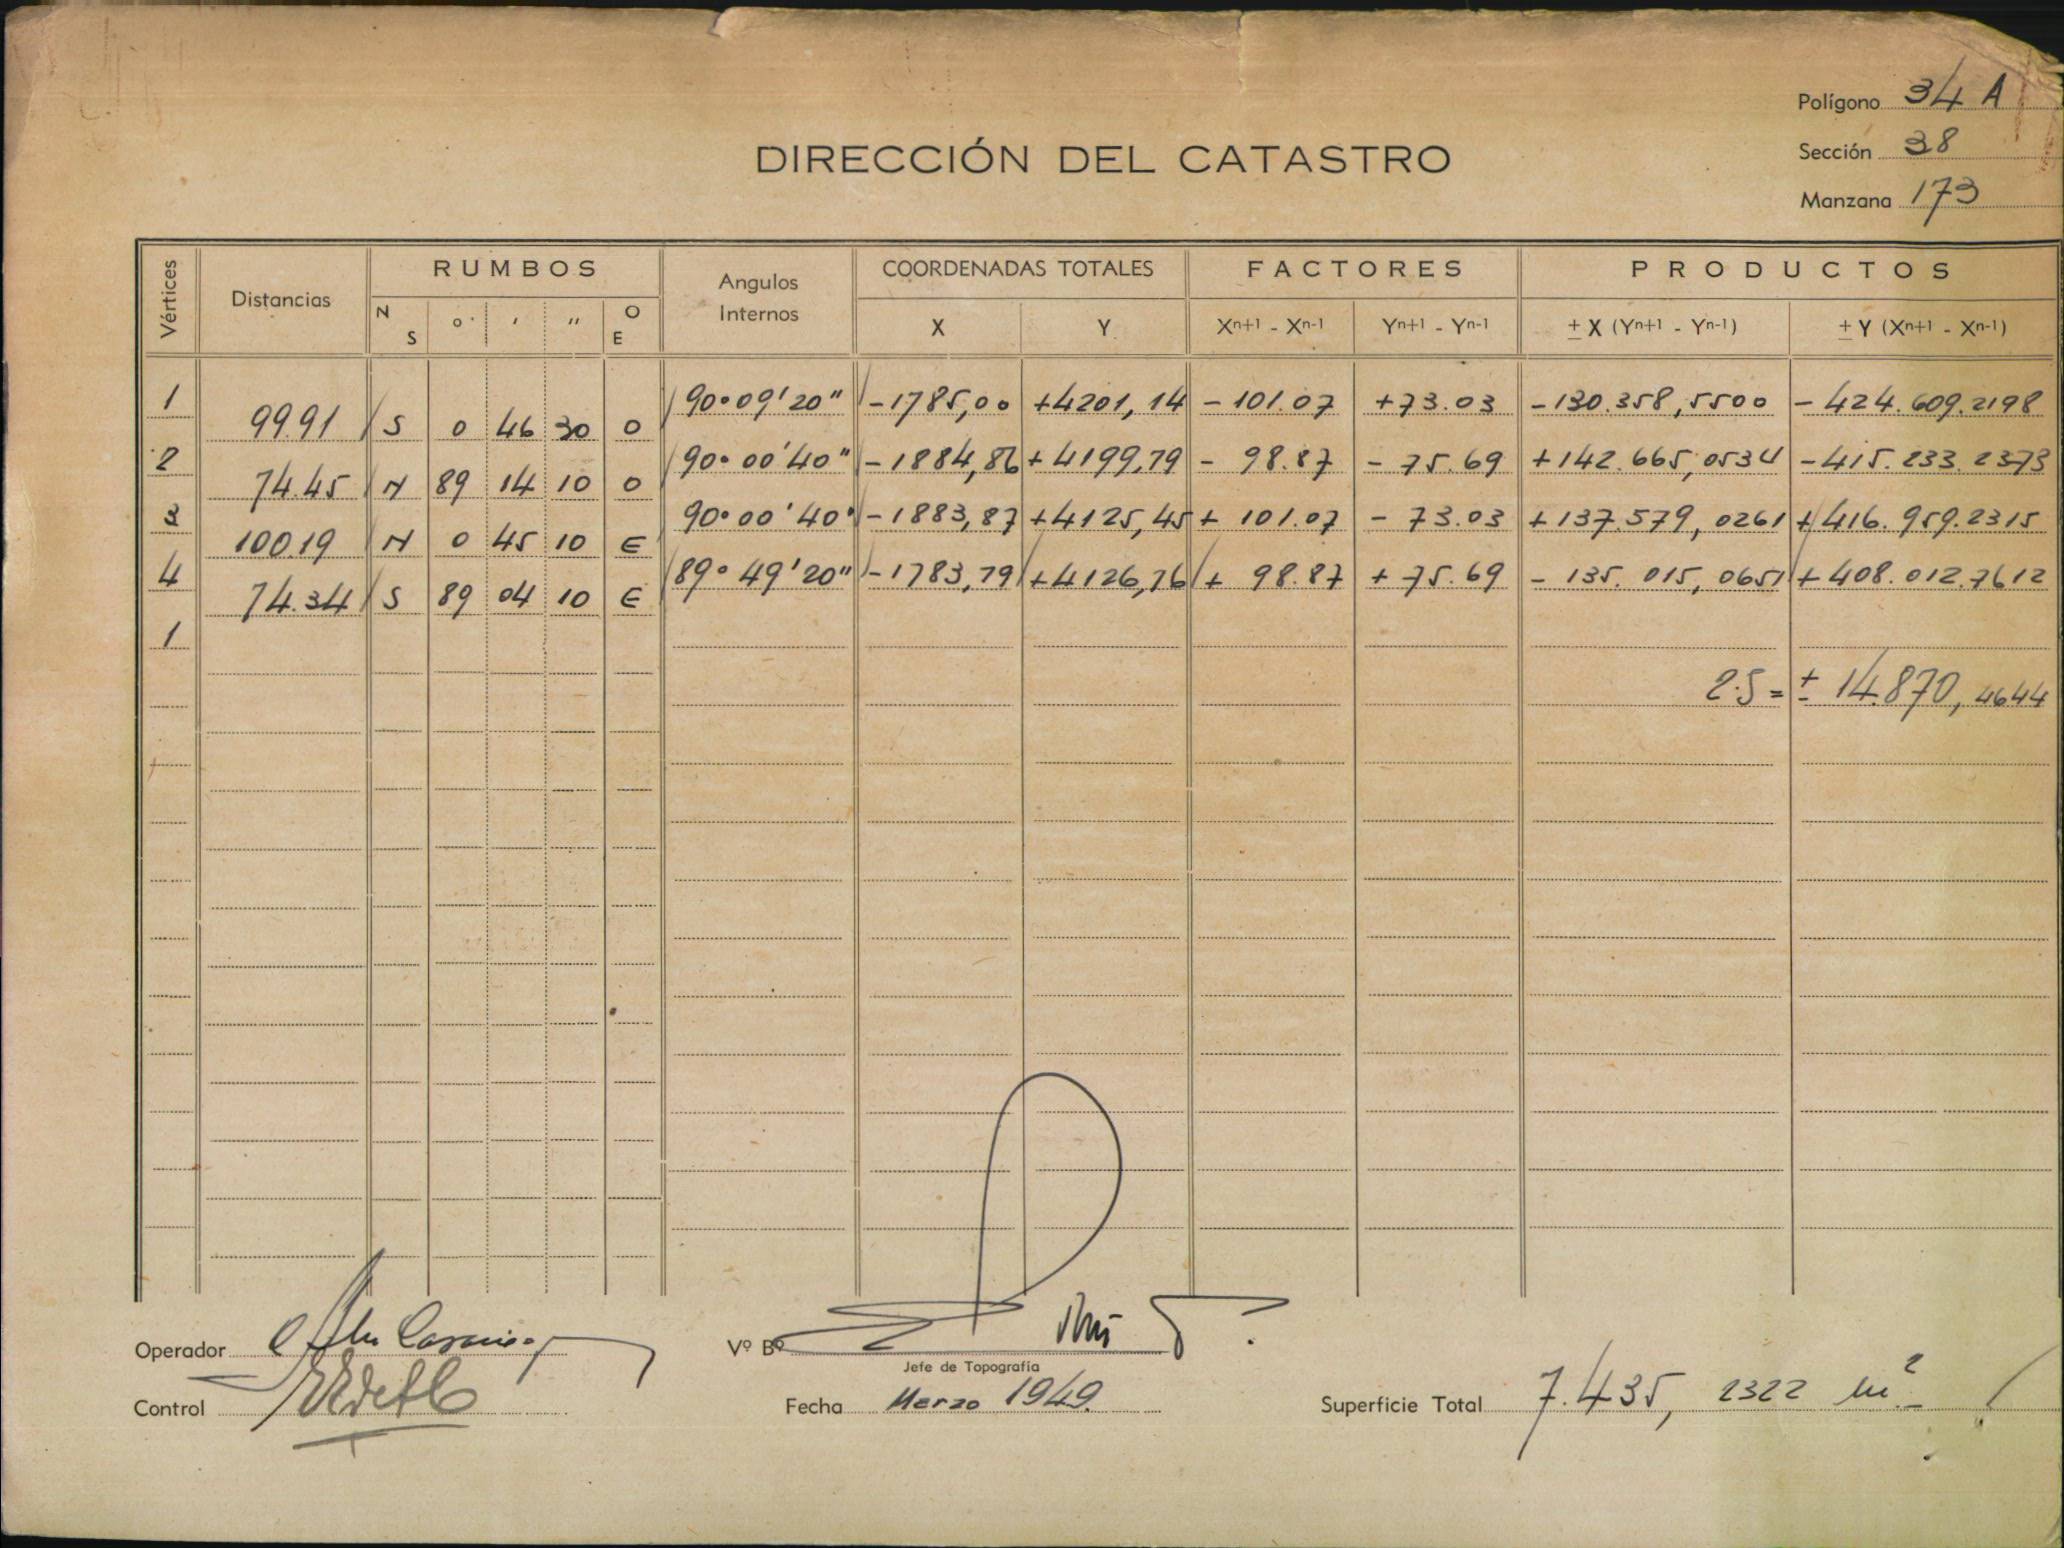 Polígono 34 A
DIRECCIÓN DEL CATASTRO
Sección 38
Manzana 173
Vértices Distancias RUMBOS Angulos Internos COORDENADAS TOTALES FACTORES PRODUCTOS
N S o ' " O E X Y Xn+1 - Xn-1 Yn+1 - Yn-1 ± X (Yn+1 - Yn-1) ± Y (Xn+1 - Xn-1)
1 90°09'20" -1785,00 +4201,14 - 101.07 +73.03 -130.358,5500 - 424.609.2198
99.91 S 0 46 30 O
2 90°00'40" -1884,86 +4199,79 - 98.87 - 75.69 +142.665,0534 -415.233.2373
74.45 N 89 14 10 O
3 90°00'40" -1883,87 +4125,45 + 101.07 - 73.03 +137.579,0261 +416.959.2315
100.19 N 0 45 10 E
4 89°49'20" -1783,79 +4126,76 + 98.87 +75.69 - 135.015,0651 +408.012.7612
74.34 S 89 04 10 E
1
2.S = ± 14.870,4644
Operador
Vº Bº
Jefe de Topografía
Control
Fecha Marzo 1949.
Superficie Total 7.435, 2322 m²